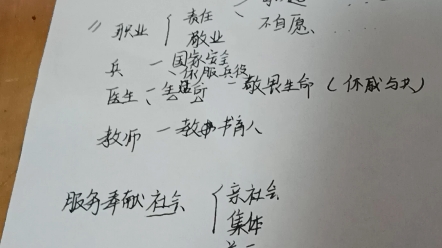 职业 { 责任
敬业
不自愿、……
兵 — 国家安全
、保服兵役
医生 — 敬畏生命 (休戚与共)
教师 — 教书育人
服务奉献社会 { 亲社会
集体